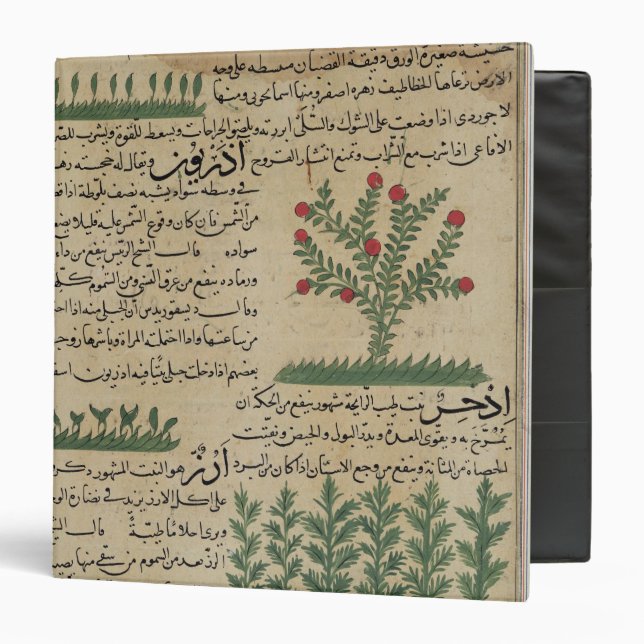 حشيشة صغيرة الورق دقيقة القضبان منبسطه على وجه
الارض زهره اصفر ومنها اسمانجونى ومنها
لاجوردى اذا وضعت على الشوك والسلى ابرزته ويلصق الجراحات ويسعط للقوة ويشرب
الافاعى اذا شرب مع الشراب وتمنع انتشار القروح
اذريون ويقال له خجسته
فى وسطه سواد يشبه نصف بلوطة اذا
من الشمس فان كان وقوع الشمس عليه قليلا
سواده قال الشيخ الرئيس ينفع من
ورماده ينفع من عرق النسى ومن السموم
وقال ديسقوريدس أن الحبلى منه اذا
من ساعتها واذا احتملته المراة وباشرها
بعضهم اذا دخلت حبلى بيتا فيه اذريون
اذخر نبت طيب الرايحة مشهور ينفع من الحكة ان
يمرخ به ويقوى المعدة ويدر البول والحيض ويفتت
الحصاة من المثانة وينفع من وجع الاسنان اذا كان من البرد
ارز هو النبت المشهور
على كل الارز يزيد فى نضارة
ويرى احلاما طيبة قال
الرز من السموم من سقى منها